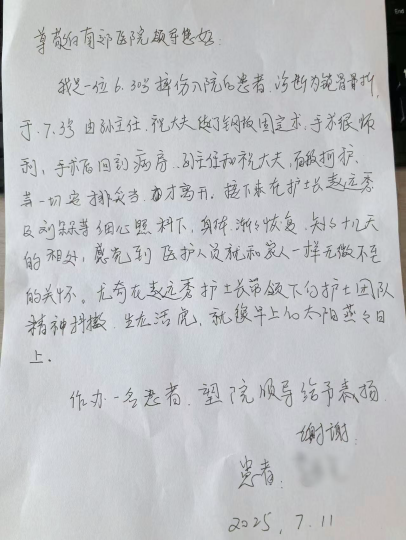 尊敬的南部医院领导您好:
我是一位6.30号摔伤入院的患者,诊断为锁骨骨折,
于.7.3号由孙主任.祝大夫做了钢板固定术,手术很顺
利,手术后回到病房.孙主任和祝大夫,
等一切安排妥当.才离开.接下来在护士长赵远秀
及刘朵等细心照料下,身体渐渐恢复.短短十几天
的相处,感觉到医护人员就和家人一样无微不至
的关怀.尤其在赵远秀护士长带领下的护士团队
精神抖擞.生龙活虎,就像早上的太阳蒸蒸日
上.
作为一名患者.望院领导给予表扬.
谢谢.
患者:
2025,7.11